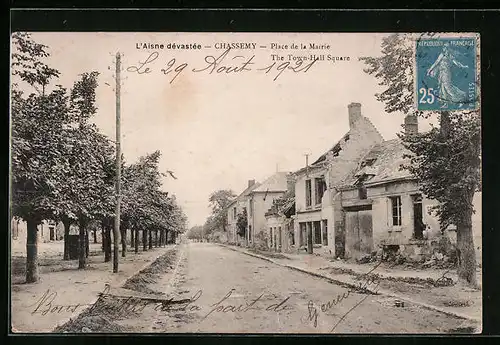 L'Aisne dévastée — CHASSEMY — Place de la Mairie
The Town-Hall Square
Le 29 Août 1921
RÉPUBLIQUE FRANÇAISE
25c
POSTES
Bons de la part de Geneviève